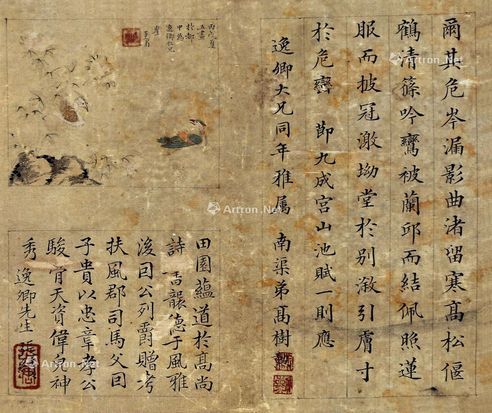 爾其危岑漏影曲渚留寒高松偃
鶴清篠吟鸞被蘭邱而結佩照蓮
服而披冠激坳堂於别漵引膚寸
於危巒 節九成宮山池賦一則應
逸卿大兄同年雅属 南渠弟高樹
丙戌夏
於都
中為
逸卿仁兄
田園蘊道於高尚
詩書韞德于風雅
浚曰公列爵贈
扶風郡司馬父曰
子貴以忠章孝公
駿骨天資偉皃神
秀 逸卿先生
Artron.Net
Artron.Net
Artron.Net
Artron.Net